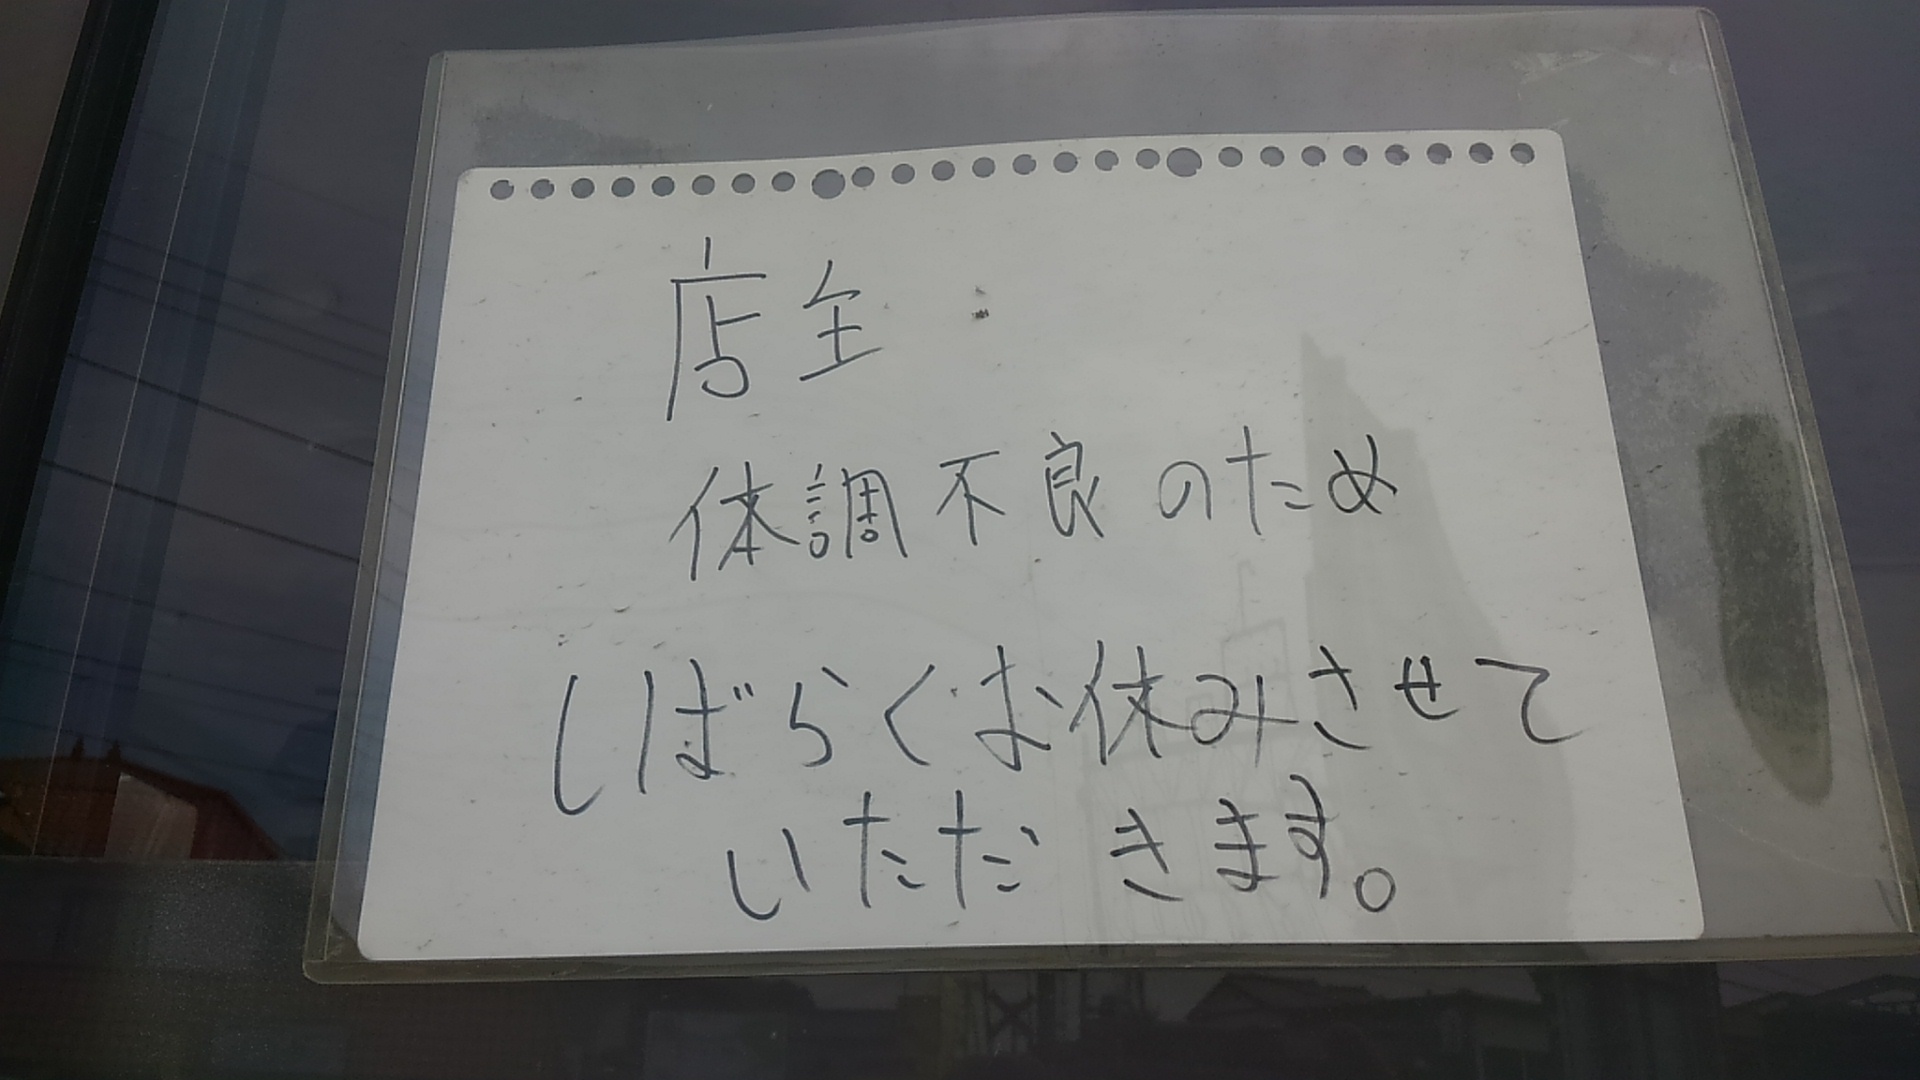 店主
体調不良のため
しばらくお休みさせて
いただきます。